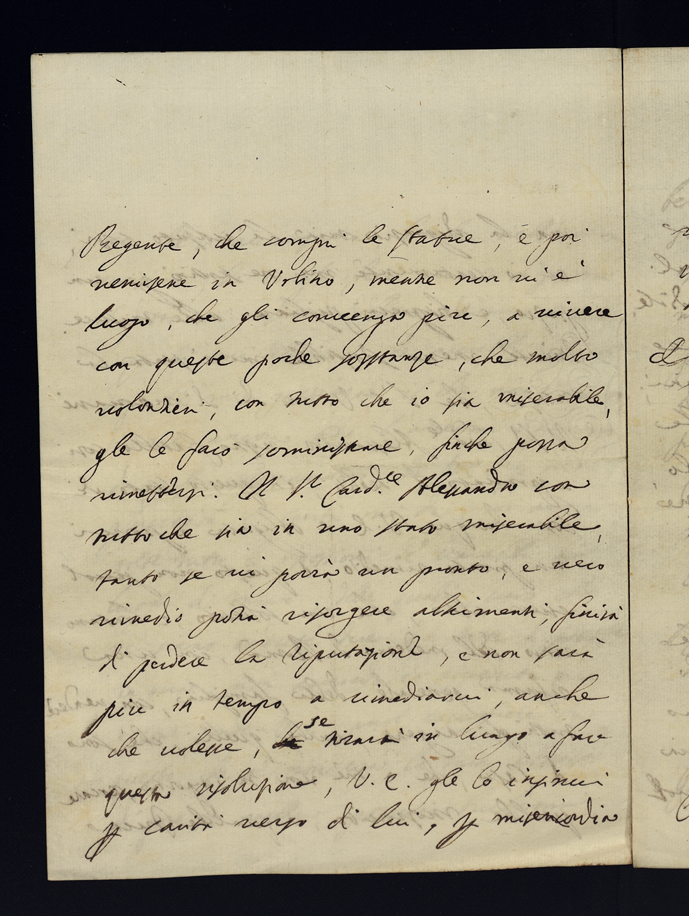 Regente, che compri le statue, e poi
venirsene in Urbino, mentre non vi è
luogo, che gli convenga più, a vivere
con queste poche sostanze, che molto
volontieri, con tutto che io sia miserabile,
gle le farò somministrare, finche possa
rimettersi. Il S.r Card.le Alessandro con
tutto che sia in uno stato miserabile,
tanto se vi porrà un pronto, e vero
rimedio potrà risorgere altrimenti, finirà
di perdere la riputazione, e non sarà
più in tempo a rimediarvi, anche
che volesse, se tirarà in lungo a fare
questa risoluzione, V. E. gle lo insinui
p carità verso di lui, p misericordia